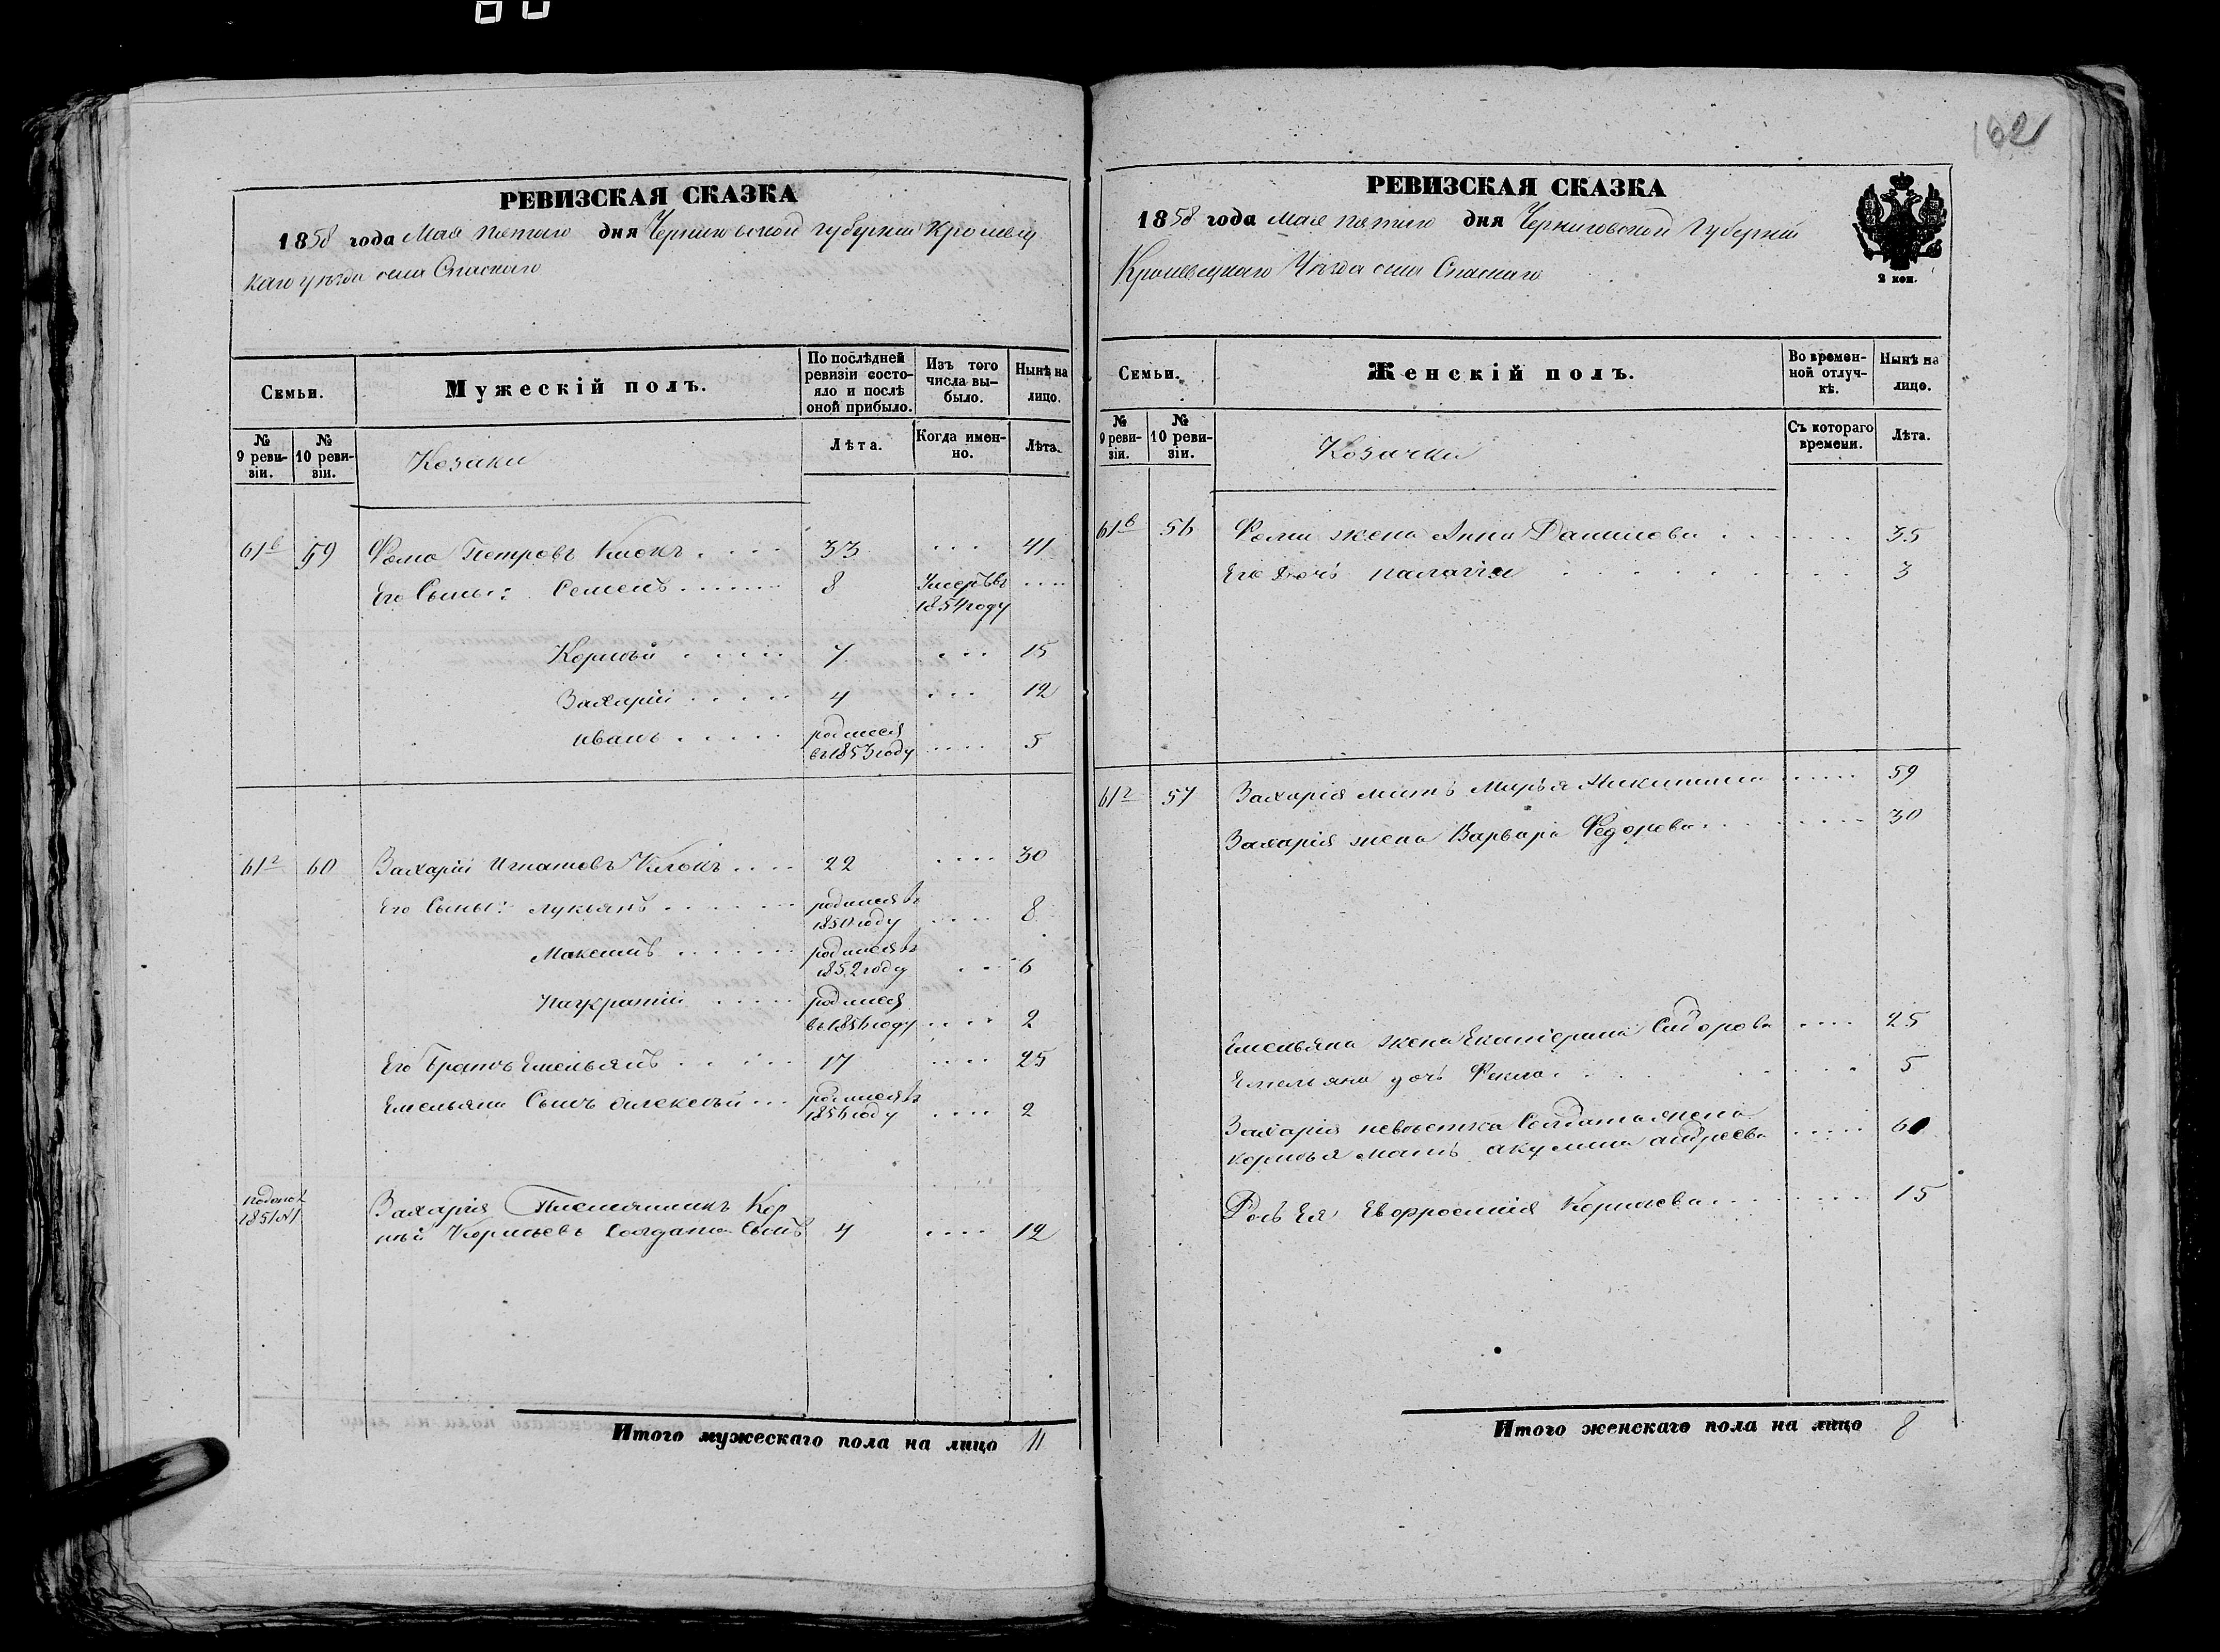 РЕВИЗСКАЯ СКАЗКА
1858 года Мая пятаго дня Черниговской губернии Кролевец
каго уезда села Спаскаго
Семьи.
Мужескій полъ.
По послѣдней ревизіи состояло и послѣ оной прибыло.
Изъ того числа выбыло.
Нынѣ на лицо.
№ 9 ревизіи.
№ 10 ревизіи.
Козаки
Лѣта.
Когда именно.
Лѣта.
61в 59 Фома Петровъ Клюкъ 33 41
Его Сыны: Семенъ 8 Умеръ въ
1854 году
Корнѣй 7 15
Захарій 4 12
Иванъ родился
въ 1853 году 5
61г 60 Захарій Игнатовъ Клюкъ 22 30
Его Сыны: Лукьянъ родился въ
1850 году 8
Максимъ родился въ
1852 году 6
Панкратій родился
въ 1856 году 2
Его Братъ Емельянъ 17 25
Емельяна Сынъ Алексѣй родился въ
1856 году 2
1851
Захарія Племянникъ Кор
нѣй Корнѣевъ Солдата Сынъ 4 12
Итого мужескаго пола на лицо 11
162
РЕВИЗСКАЯ СКАЗКА
1858 года Мая пятаго дня Черниговской Губерніи
Кролевецкаго Уѣзда села Спаскаго
2 коп.
Семьи.
Женскій полъ.
Во временной отлучкѣ.
Нынѣ на лицо.
№ 9 ревизіи.
№ 10 ревизіи.
Козачки
Съ котораго времени.
Лѣта.
61в 56 Фомы жена Анна Данилова 35
Его дочь Палагія 3
61г 57 Захарія мать Марья Никитина 59
Захарія жена Варвара Федорова 30
Емельяна жена Екатерина Сидорова 25
Емельяна дочь Фекла 5
Захарія невѣстка Солдатская жена
Корнѣя мать Акулина Андреева
Дочь Ея Евфросинія Корнѣева 15
Итого женскаго пола на лицо 8